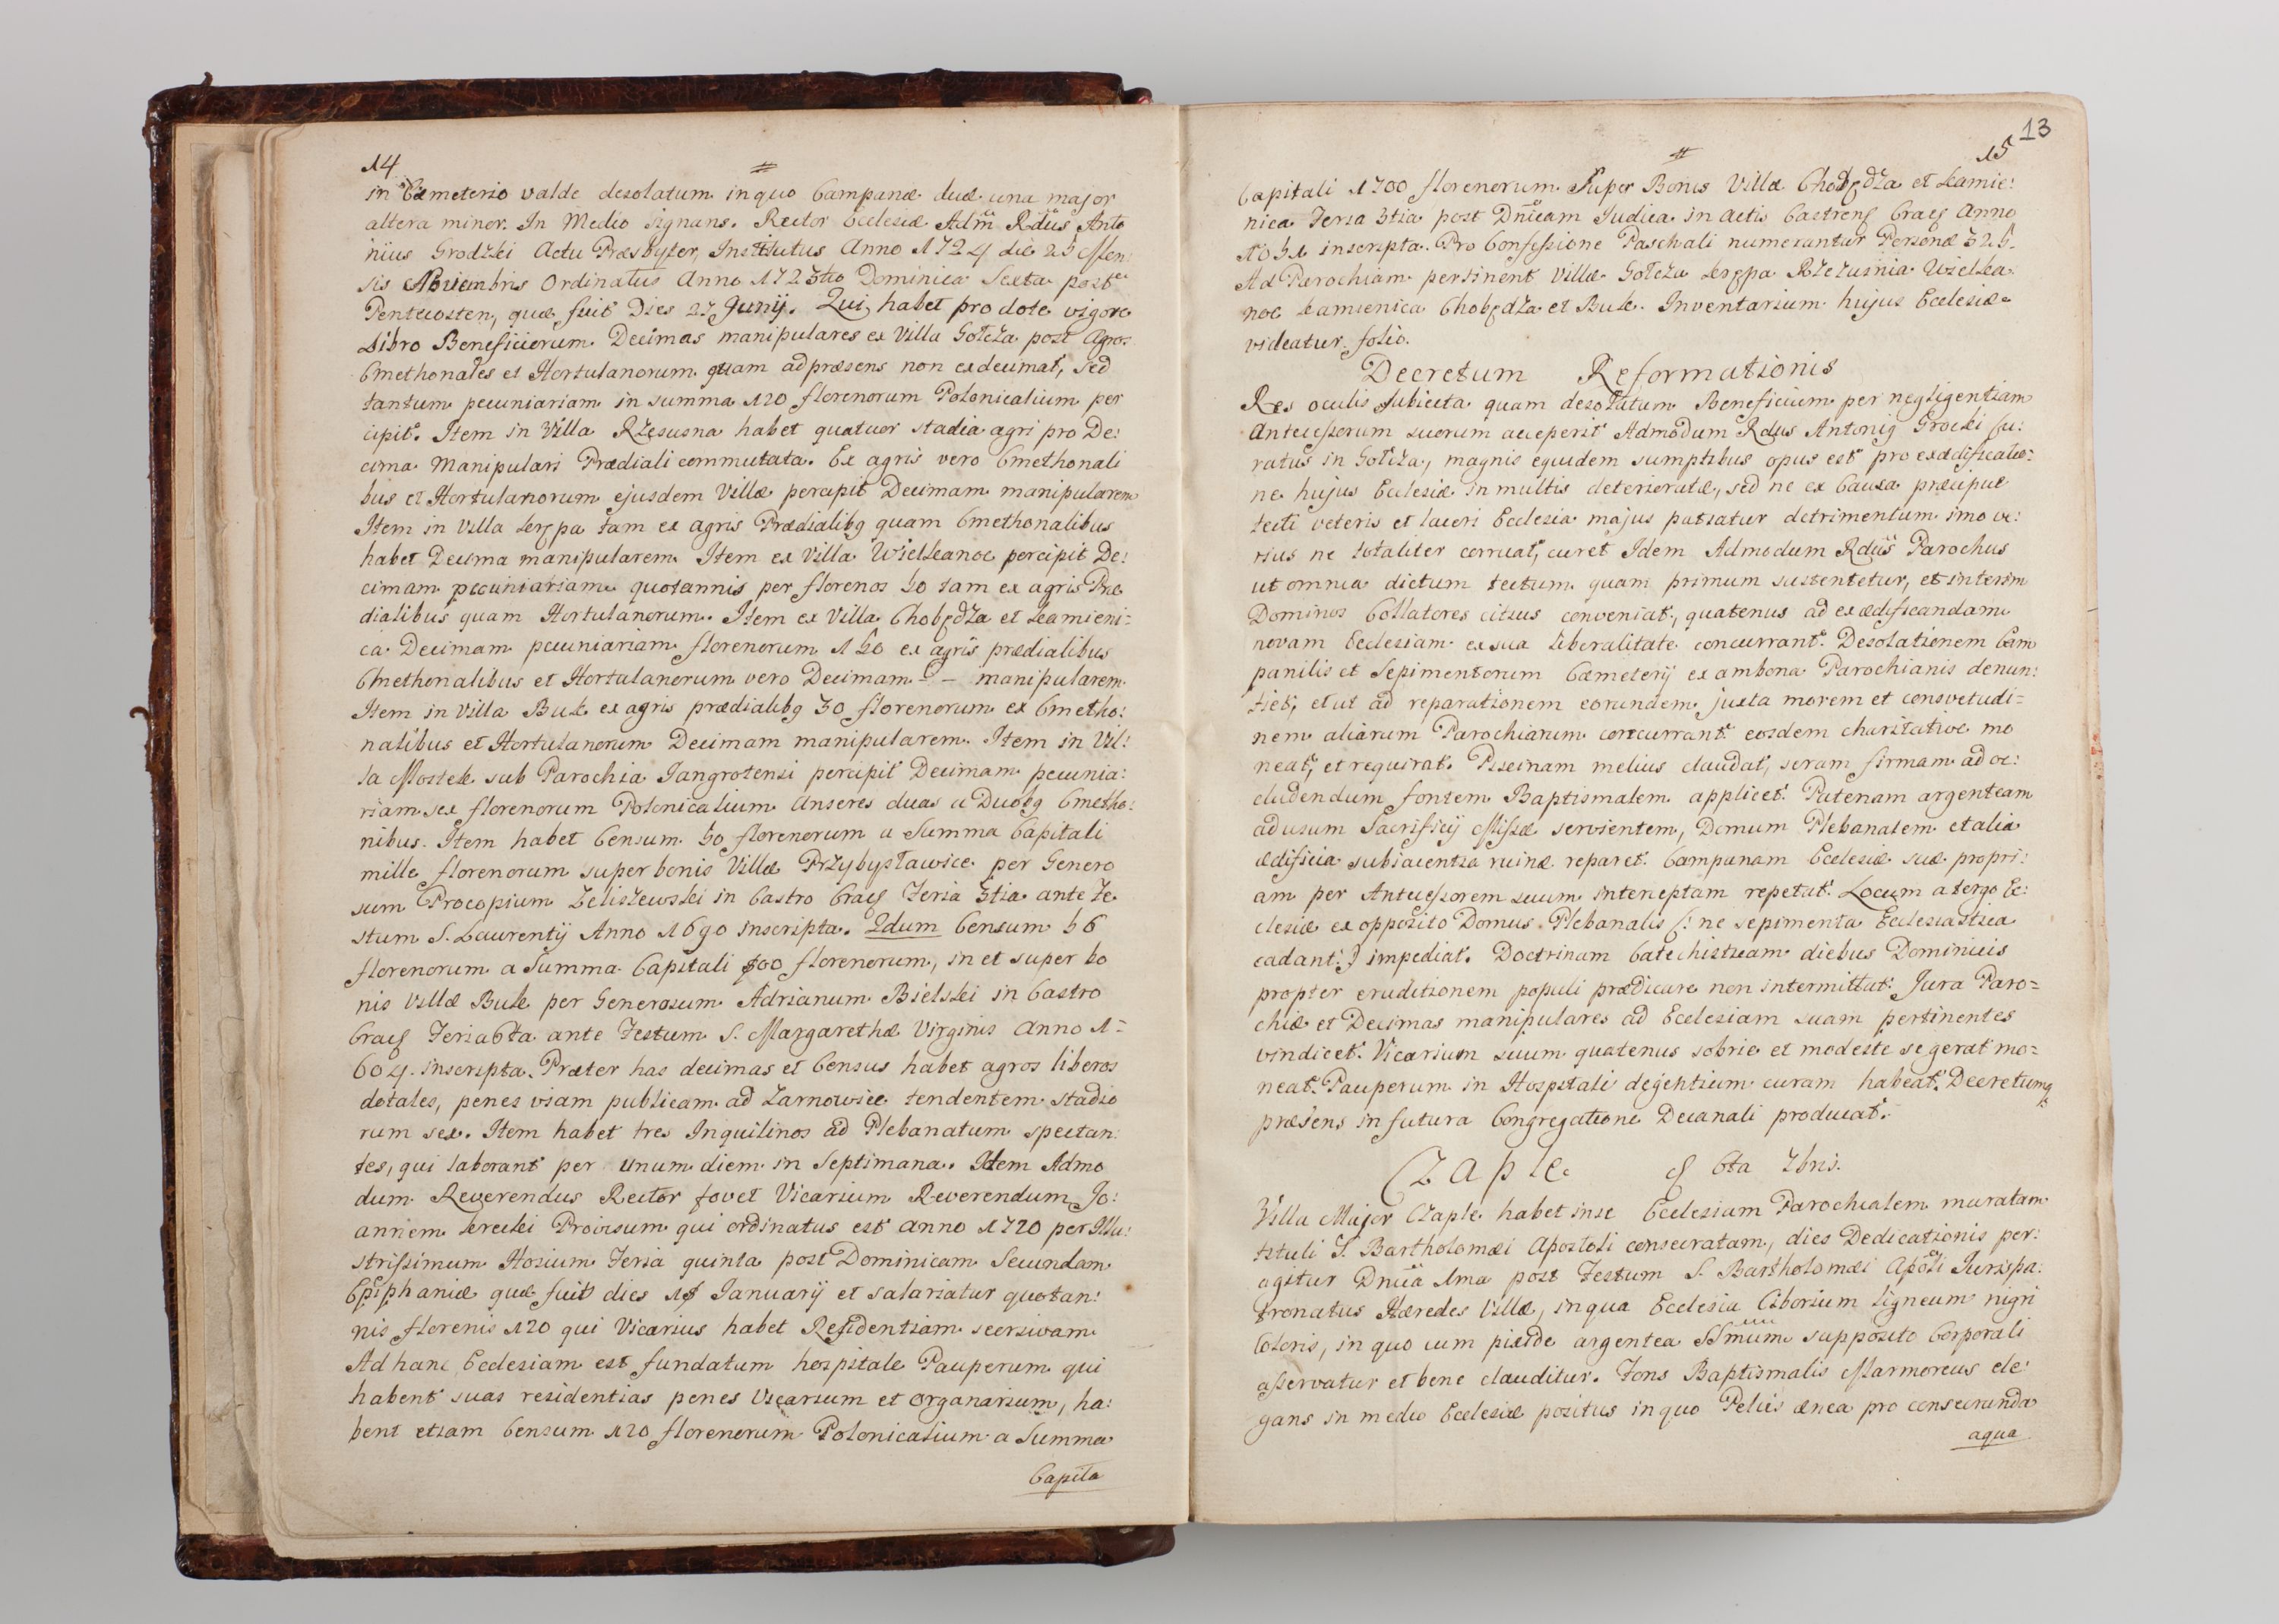 14
in Cæmeterio valde desolatum in quo Campanæ duæ una major
altera minor. In Medio signans. Rector Ecclesiæ Adm̄ Rdūs Anto
nius Grodzki Actu Præsbyter, Institutus Anno 1724 die 25 Men:
sis Novembris Ordinatus Anno 1723tio Dominica Sexta post
Pentecosten, quæ fuit Dies 27 Junij. Qui, habet pro dote vigore
Libro Beneficiorum Decimas manipulares ex Villa Gołcza post Agros
Cmethonales et Hortulanorum quam ad præsens non exdecimat, sed
tantum pecuniariam in summa 120 florenorum Polonicalium per
cipit. Item in Villa Rzęsusna habet quatuor stadia agri pro De:
cima Manipulari Prædiali commutata. Ex agris vero Cmethonali
bus et Hortulanorum ejusdem Villæ percipit Decimam manipularem
Item in Villa Szrępa tam ex agris Prædialibq quam Cmethonalibus
habet Decima manipularem. Item ex Villa Wielkanoc percipit De:
cimam pecuniariam quotannis per florenos 50 tam ex agris Præ
dialibus quam Hortulanorum. Item ex Villa Chobędza et Kamieni=
ca Decimam pecuniariam florenorum 150 ex agris prædialibus
Cmethonalibus et Hortulanorum vero Decimam - - manipularem.
Item in Villa Buk ex agris prædialibq 30 florenorum ex Cmetho:
nalibus et Hortulanorum Decimam manipularem. Item in Vil:
la Mostek sub Parochia Jangrotensi percipit Decimam pecunia:
riam sex florenorum Polonicalium Anseres duas a Duobq Cmetho:
nibus. Item habet Censum 50 florenorum a Summa Capitali
mille florenorum super bonis Villæ Przybysławice per Genero
sum Procopium Zeliszewski in Castro Cracz Feria 3tia ante Fe
stum S. Laurentij Anno 1690 inscripta. Idum Censum 56
florenorum a Summa Capitali 800 florenorum, in et super bo
nis Villæ Buk per Generosum Adrianum Bielski in Castro
Cracz Feria 6ta ante Festum S. Margarethæ Virginis Anno 1=
604. inscripta. Præter has decimas et Census habet agros liberos
dotales, penes viam publicam ad Żarnowiec tendentem stadio
rum sex. Item habet tres Inquilinos ad Plebanatum spectan:
tes, qui laborant per unum diem in Septimana. Item Admo
dum Reverendus Rector fovet Vicarium Reverendum Jo:
annem Krecki Provisum qui ordinatus est Anno 1720 per Illu:
strissimum Hosium Feria quinta post Dominicam Secundam
Epiphaniæ quæ fuit dies 18 Januarij et salariatur quotan:
nis florenis 120 qui Vicarius habet Residentiam seorsivam.
Ad hanc Ecclesiam est fundatum hospitale Pauperum qui
habent suas residentias penes Vicarium et Organarium, ha:
bent etiam Censum 120 florenorum Polonicalium a Summa
Capita
13
15
Capitali 1700 florenorum Super Bonis Villæ Chobędza et Kamie:
nica Feria 3tia post Dnīcam Judica in Actis Castrens Cracz Anno
1651 inscripta. Pro Confessione Paschali numerantur Personæ 325.
Ad Parochiam pertinent Villæ Gołcza Szrępa Rzezusnia Wielka
noc Kamienica Chobędza et Buk. Inventarium hujus Ecclesiæ
videatur folio.
Decretum Reformationis
Res oculis subiecta quam desolatum Beneficium per negligentiam
Antecessorum suorum acceperit Admodum Rdus Antonij Grocki Cu:
ratus in Gołcza, magnis equidem sumptibus opus est pro exædificatio:
ne hujus Ecclesiæ in multis deterioratæ, sed ne ex Causa præcipue
tecti veteris et laceri Ecclesia majus patiatur detrimentum imo ve:
rius ne totaliter corruat, curet Idem Admodum Rdūs Parochus
ut omnia dictum tectum quam primum sustentetur, et interim
Dominos Collatores citius conveniat, quatenus ad exædificandam
novam Ecclesiam ex sua liberalitate concurrant. Desolationem Cam
panilis et Sepimentorum Cæmeterij ex ambona Parochianis denun:
tiet, et ut ad reparationem eorundem juxta morem et consvetudi=
nem aliarum Parochiarum concurrant eosdem charitative mo
neat, et requirat. Piscinam melius claudat, seram firmam ad oc:
cludendum fontem Baptismalem applicet. Patenam argenteam
ad usum Sacrificij Missæ servientem, Domum Plebanalem et alia
ædificia subiacentia ruinæ reparet. Campanam Ecclesiæ suæ propri:
am per Antecessorem suum interceptam repetat. Locum a tergo Ec:
clesiæ ex opposito Domus Plebanalis (: ne sepimenta Ecclesiastica
cadant :) impediat. Doctrinam Catechisticam diebus Dominicis
propter eruditionem populi prædicare non intermittat. Jura Paro=
chiæ et Decimas manipulares ad Ecclesiam suam pertinentes
vindicet. Vicarium suum quatenus sobrie et modeste se gerat mo=
neat. Pauperum in Hospitali degentium curam habeat. Decretumq
præsens in futura Congregatione Decanali producat.
Czaple 6ta 7bris.
Villa Major Czaple habet in se Ecclesiam Parochialem muratam
tituli S. Bartholomæi Apostoli consecratam, dies Dedicationis per:
agitur Dnīca 1ma post Festum S. Bartholomæi Apoli Jurispa:
tronatus Hæredes Villæ, in qua Ecclesia Ciborium ligneum nigri
Coloris, in quo cum pixide argentea SSmum supposito Corporali
asservatur et bene clauditur. Fons Baptismalis Marmoreus ele:
gans in medio Ecclesiæ positus in quo Pelvis ænea pro consecranda
aqua